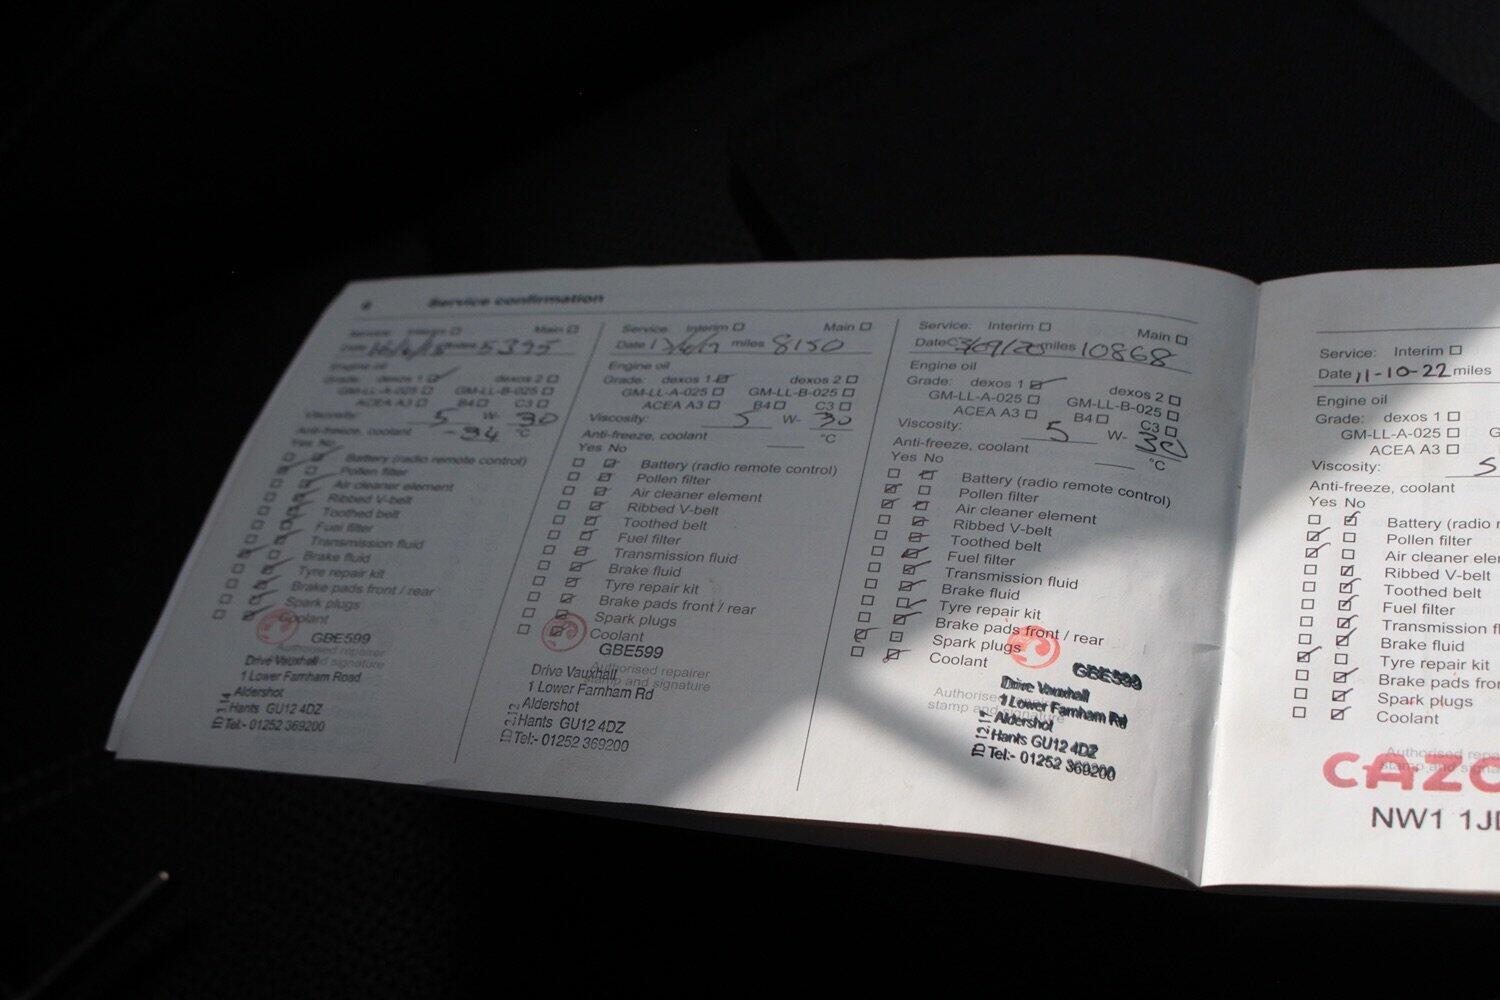 Service confirmation
Service: Interim Main
Date 16/6/18 miles 5395
Engine oil
Grade: dexos 1 dexos 2
GM-LL-A-025 GM-LL-B-025
ACEA A3 B4 C3
Viscosity: 5 W- 30
Anti-freeze, coolant -34 °C
Yes No
Battery (radio remote control)
Pollen filter
Air cleaner element
Ribbed V-belt
Toothed belt
Fuel filter
Transmission fluid
Brake fluid
Tyre repair kit
Brake pads front / rear
Spark plugs
Coolant
GBE599
Authorised repairer
stamp and signature
Drive Vauxhall
1 Lower Farnham Road
Aldershot
Hants GU12 4DZ
Tel:- 01252 369200
Service: Interim Main
Date miles 8150
Engine oil
Grade: dexos 1 dexos 2
GM-LL-A-025 GM-LL-B-025
ACEA A3 B4 C3
Viscosity: 5 W- 30
Anti-freeze, coolant °C
Yes No
Battery (radio remote control)
Pollen filter
Air cleaner element
Ribbed V-belt
Toothed belt
Fuel filter
Transmission fluid
Brake fluid
Tyre repair kit
Brake pads front / rear
Spark plugs
Coolant
GBE599
Authorised repairer
stamp and signature
Drive Vauxhall
1 Lower Farnham Rd
Aldershot
Hants GU12 4DZ
Tel:- 01252 369200
Service: Interim Main
Date 03/09/20 miles 10868
Engine oil
Grade: dexos 1 dexos 2
GM-LL-A-025 GM-LL-B-025
ACEA A3 B4 C3
Viscosity: 5 W- 30
Anti-freeze, coolant °C
Yes No
Battery (radio remote control)
Pollen filter
Air cleaner element
Ribbed V-belt
Toothed belt
Fuel filter
Transmission fluid
Brake fluid
Tyre repair kit
Brake pads front / rear
Spark plugs
Coolant
GBE599
Authorised
stamp and signature
Drive Vauxhall
1 Lower Farnham Rd
Aldershot
Hants GU12 4DZ
Tel:- 01252 369200
Service: Interim
Date 11-10-22 miles
Engine oil
Grade: dexos 1
GM-LL-A-025 G
ACEA A3
Viscosity: 5
Anti-freeze, coolant
Yes No
Battery (radio r
Pollen filter
Air cleaner eler
Ribbed V-belt
Toothed belt
Fuel filter
Transmission fl
Brake fluid
Tyre repair kit
Brake pads fron
Spark plugs
Coolant
Authorised repa
stamp and signa
CAZO
NW1 1JD